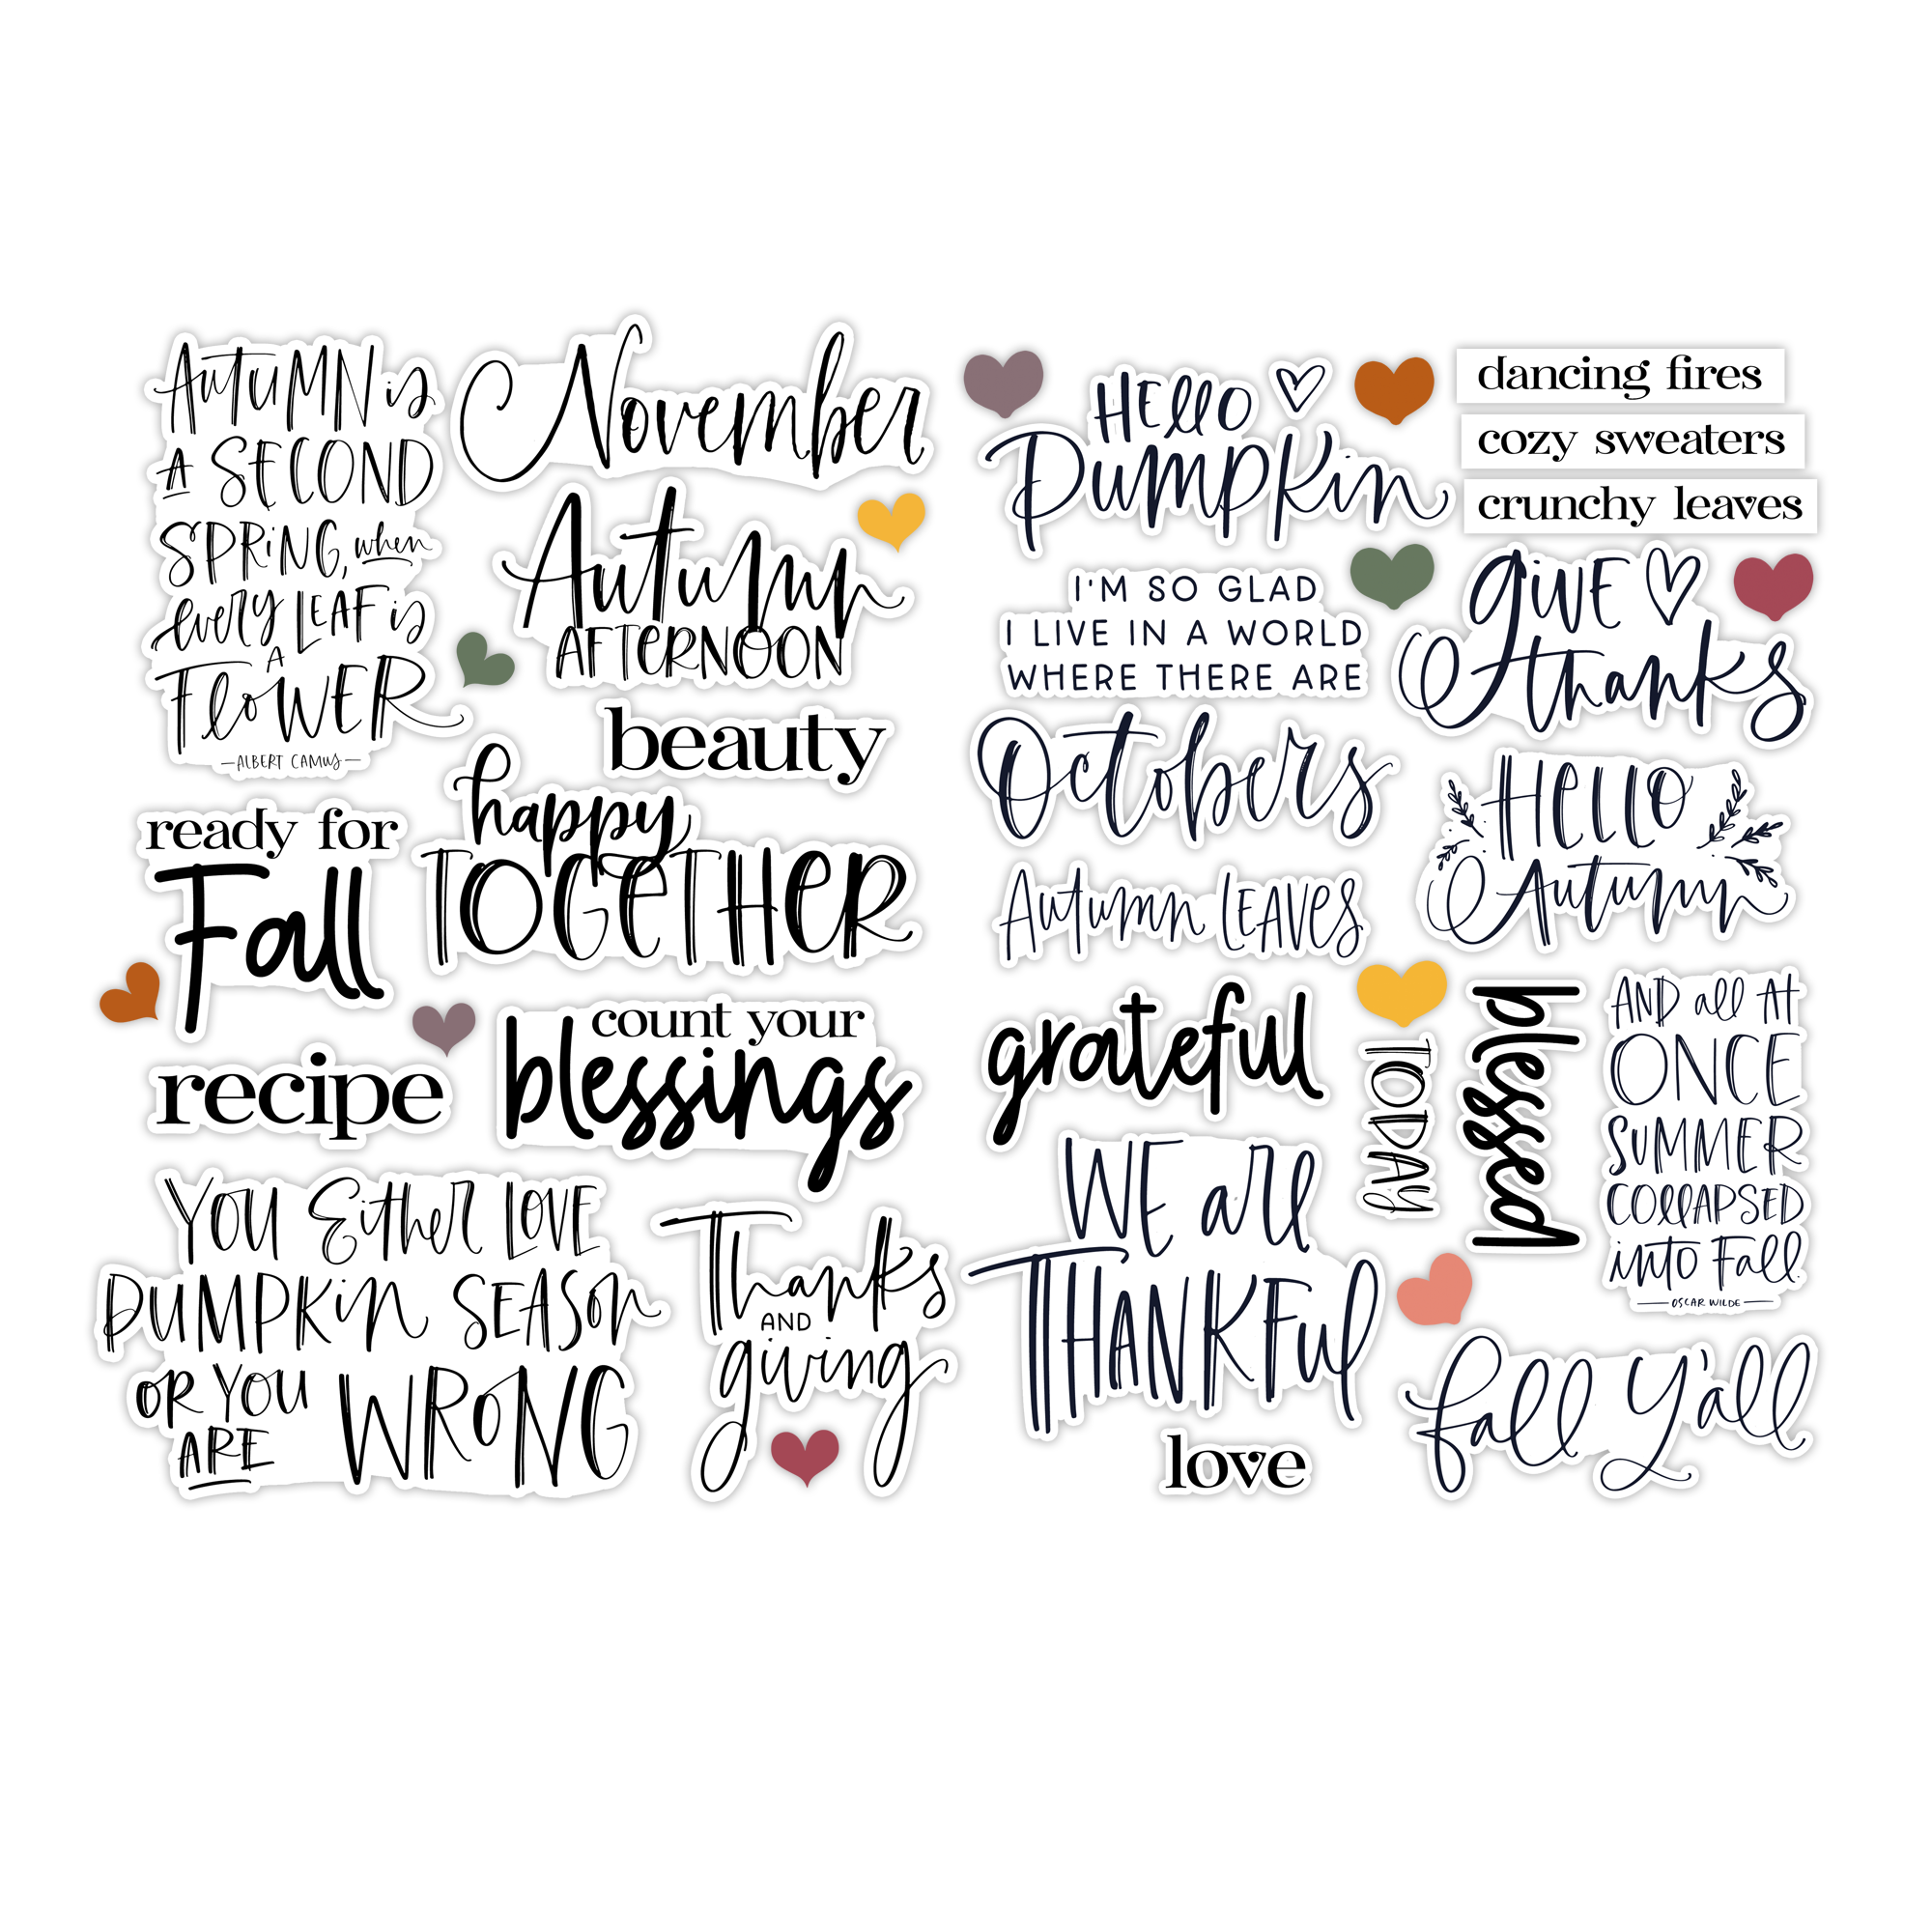 AUTUMN is
A SECOND
SPRiNG, when
every LEAF is
A
FloWER
—ALBERT CAMUS—
November
Autumn
AFTERNOON
beauty
ready for
Fall
happy
TOGETHER
recipe
count your
blessings
YOU Either LOVE
PUMPKin SEASON
OR YOU WRONG
ARE
Thanks
AND
giving
HEllo
Pumpkin
I'M SO GLAD
I LIVE IN A WORLD
WHERE THERE ARE
Octobers
Autumn LEAVES
grateful
TODAY
WE are
THANKFul
love
dancing fires
cozy sweaters
crunchy leaves
GiVE
thanks
HELLO
Autumn
blessed
AND all At
ONCE
SuMMER
COllAPSED
into Fall.
— OSCAR WILDE —
fall y'all